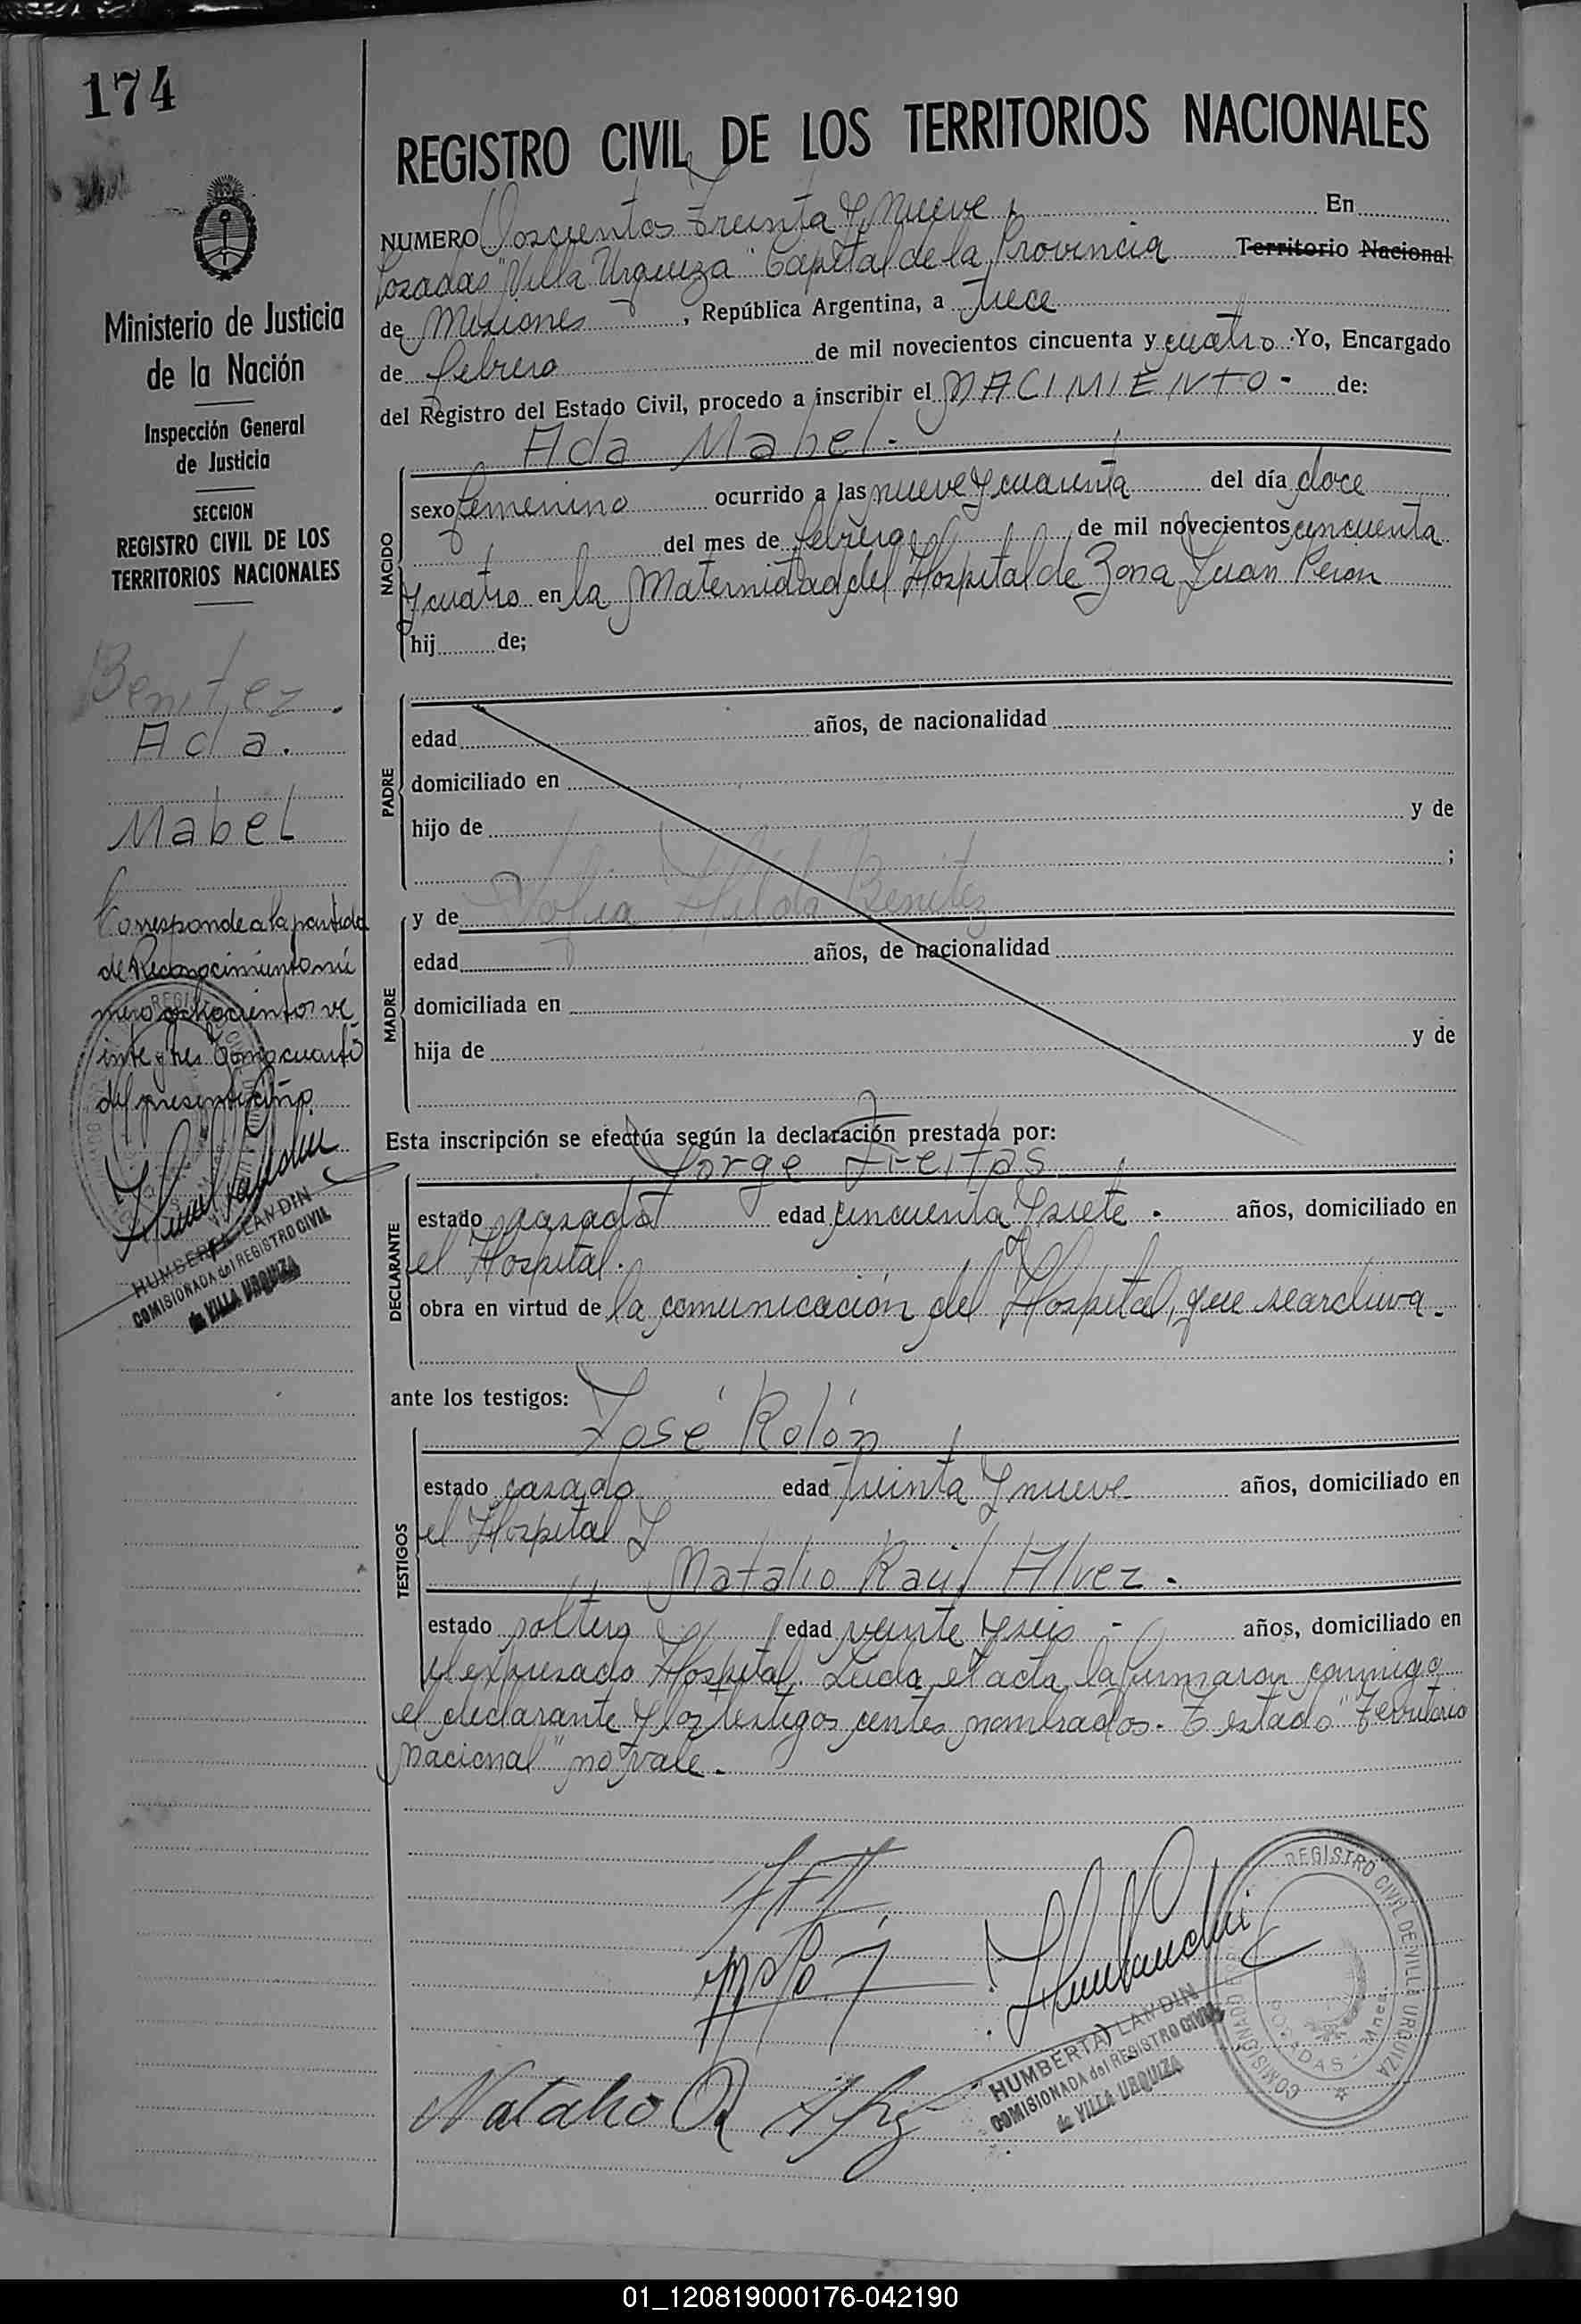 174
REGISTRO CIVIL DE LOS TERRITORIOS NACIONALES
NUMERO Doscientos treinta y nueve. En
Posadas "Villa Urquiza" Capital de la Provincia Territorio Nacional
de Misiones, República Argentina, a trece
de febrero de mil novecientos cincuenta y cuatro. Yo, Encargado
del Registro del Estado Civil, procedo a inscribir el NACIMIENTO- de:
Ada Mabel-
NACIDO
sexo femenino ocurrido a las nueve y cuarenta del día doce
del mes de febrero de mil novecientos cincuenta
y cuatro en la Maternidad del Hospital de Zona Juan Peron
hij de;
PADRE
edad años, de nacionalidad
domiciliado en
hijo de y de
;
MADRE
y de Sofia Hilda Benitez
edad años, de nacionalidad
domiciliada en
hija de y de
Esta inscripción se efectúa según la declaración prestada por:
Jorge Freitas
DECLARANTE
estado casado edad cincuenta y siete. años, domiciliado en
el Hospital.
obra en virtud de la comunicación del Hospital, que se archiva.
ante los testigos:
José Rolón
TESTIGOS
estado casado edad treinta y nueve años, domiciliado en
el Hospital y
Natalio Raúl Alvez.
estado soltero edad veinte y seis - años, domiciliado en
el expresado Hospital. Leida el acta la firmaron conmigo
el declarante y los testigos antes nombrados. Testado "Territorio
Nacional" no vale.
Natalio R Alvez
HUMBERTA LANDIN
COMISIONADA del REGISTRO CIVIL
de VILLA URQUIZA
REGISTRO CIVIL DE VILLA URQUIZA
POSADAS - Mnes.
Ministerio de Justicia
de la Nación
Inspección General
de Justicia
SECCION
REGISTRO CIVIL DE LOS
TERRITORIOS NACIONALES
Benitez.
Ada.
Mabel
Corresponde a la partida
de Reconocimiento nú
mero ochocientos ve
inte y tres Tomo cuarto
del presente año.
HUMBERTA LANDIN
COMISIONADA del REGISTRO CIVIL
de VILLA URQUIZA
01_120819000176-042190